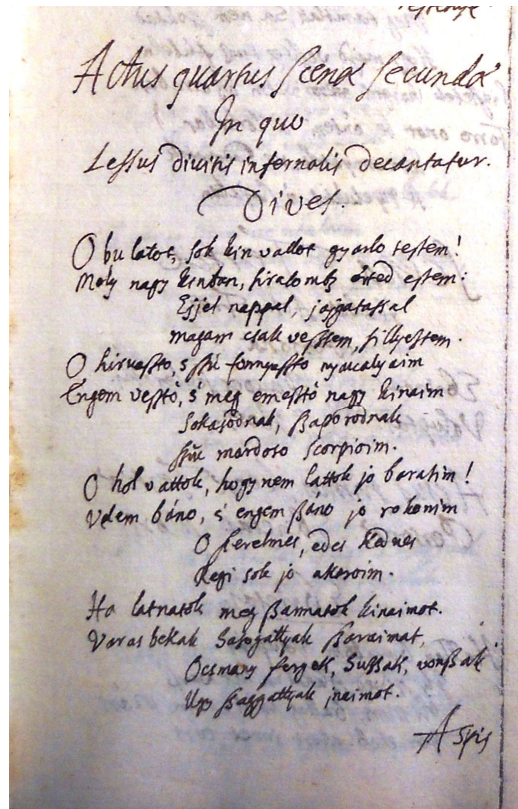 Actus quartus Scena Secunda
In quo
Lessus divitis infernalis decantatur.
Dives.
O bu latot, sok kin vallot gyarlo testem!
Mely nagy kinban, siralomb ested estem:
Ejjel nappal, jajgatassal
magam csak vesztem, sillyesztem.
O hirveszto, s szü fonnyaszto nyavalyaim
Engem veszto, s meg emeszto nagy kinaim
Sokasodnak, szaporodnak
szüu mardoso Scorpioim.
O hol vattok, hogy nem lattok jo baratim!
Velem bano, s engem szano jo rokonim
O szerelmes, edes kedves
Regi sok jo akaroim.
Ha latnatok meg szannatok kinaimot.
Varas bekak Sasogattyak szaraimat,
Ocsmany fergek, Sussak, vonszak
Ugy szaggattyak inaimot.
Aspis